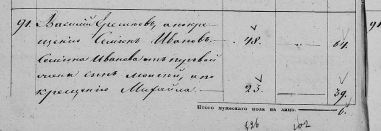 91. Василий Еремеевъ, а по кре-
щению Семенъ Ивановъ 48. 64.
Семена Иванова отъ первой
жены сынъ, а по
крещению Михайла 23. 39.
Итого мужескаго пола на лицо 6.
91